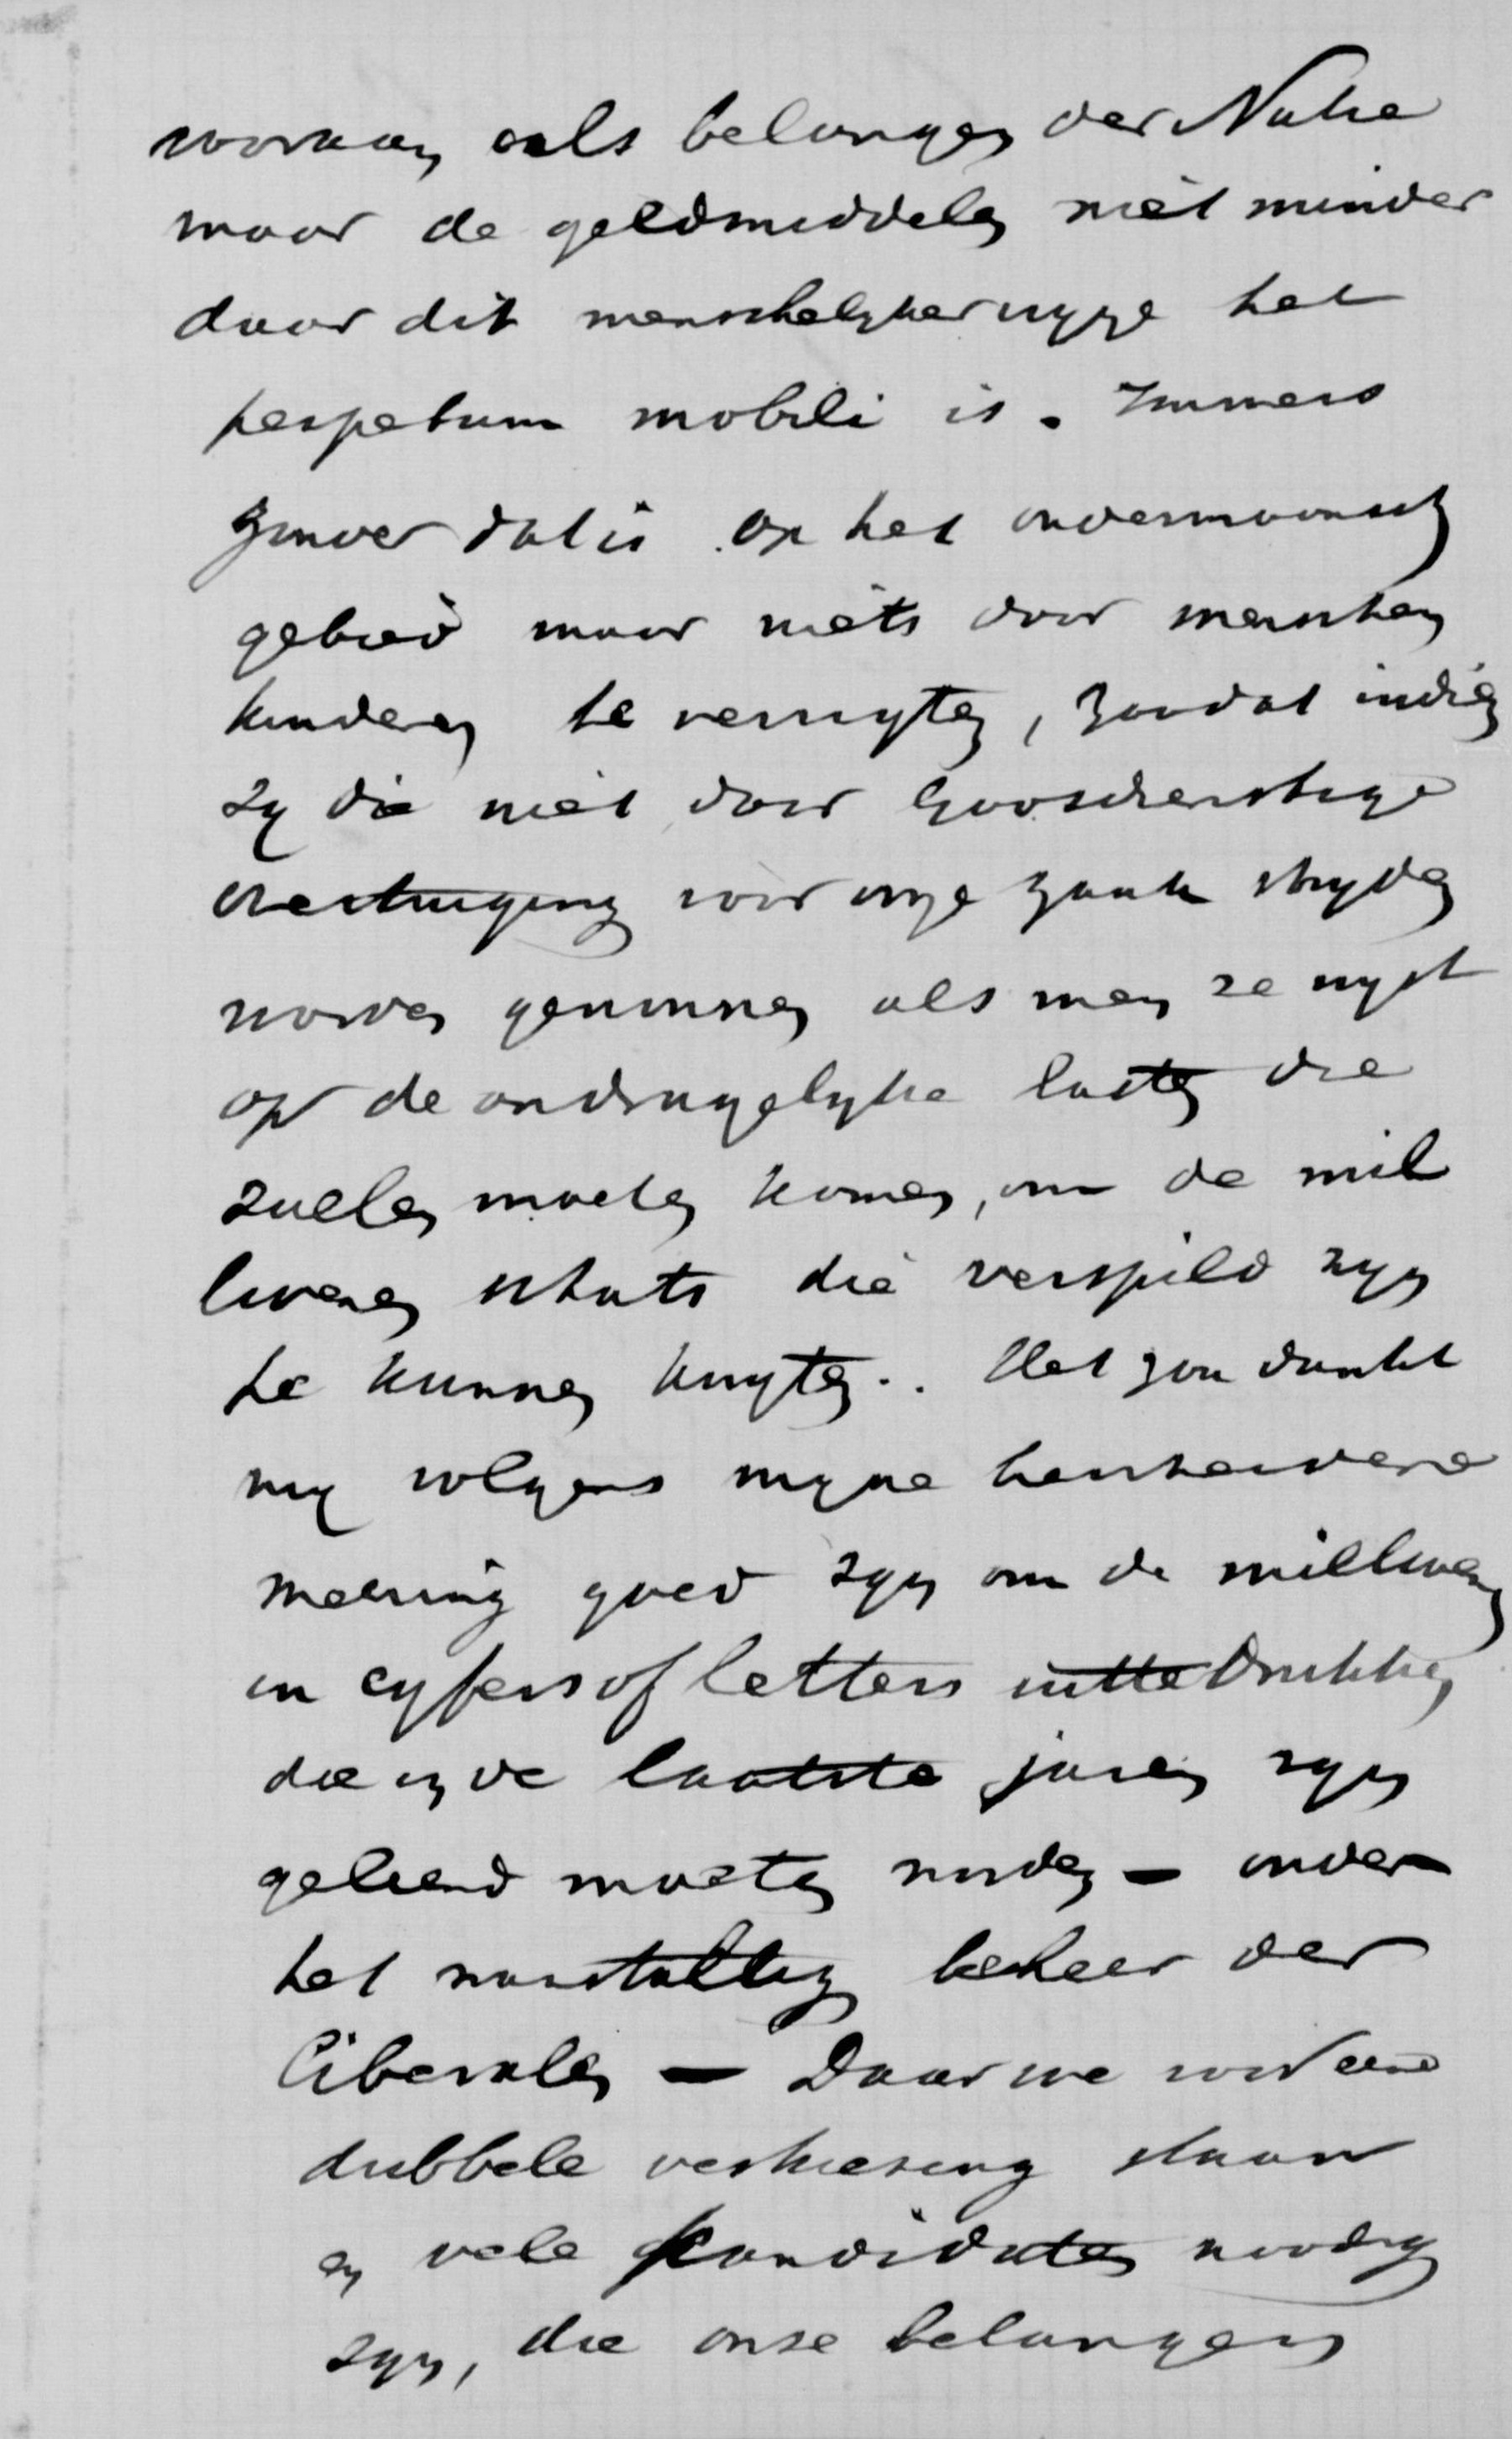 vooraan als belangen der Natie
maar de geldmiddelen niet minder
daar dit menschelykerwyze het
perpetum mobili is. Immers
zonder dat is op het ondermaansch
gebied maar niets door menschen
kinderen te verrigten, zoodat indien
zy die niet door Godsdienstige
overtuiging voor onze zaak stryden
worden gewonnen als men ze wyst
op de ondragelyke lasten die
zullen moeten komen, om de mil
lioenen schats die verspild zyn
te kunnen kwyten.. Het zou dunkt
my volgens myne bescheidene
meening goed zyn om de millioenen
in cyfers of letters uittedrukken
die in de laatste jaren zyn
geleend moeten worden — onder
het beheer der
Liberalen — Daar we voor eene
dubbele verkiezing staan
en vele kandidaten noodig
zyn, die onze belangen